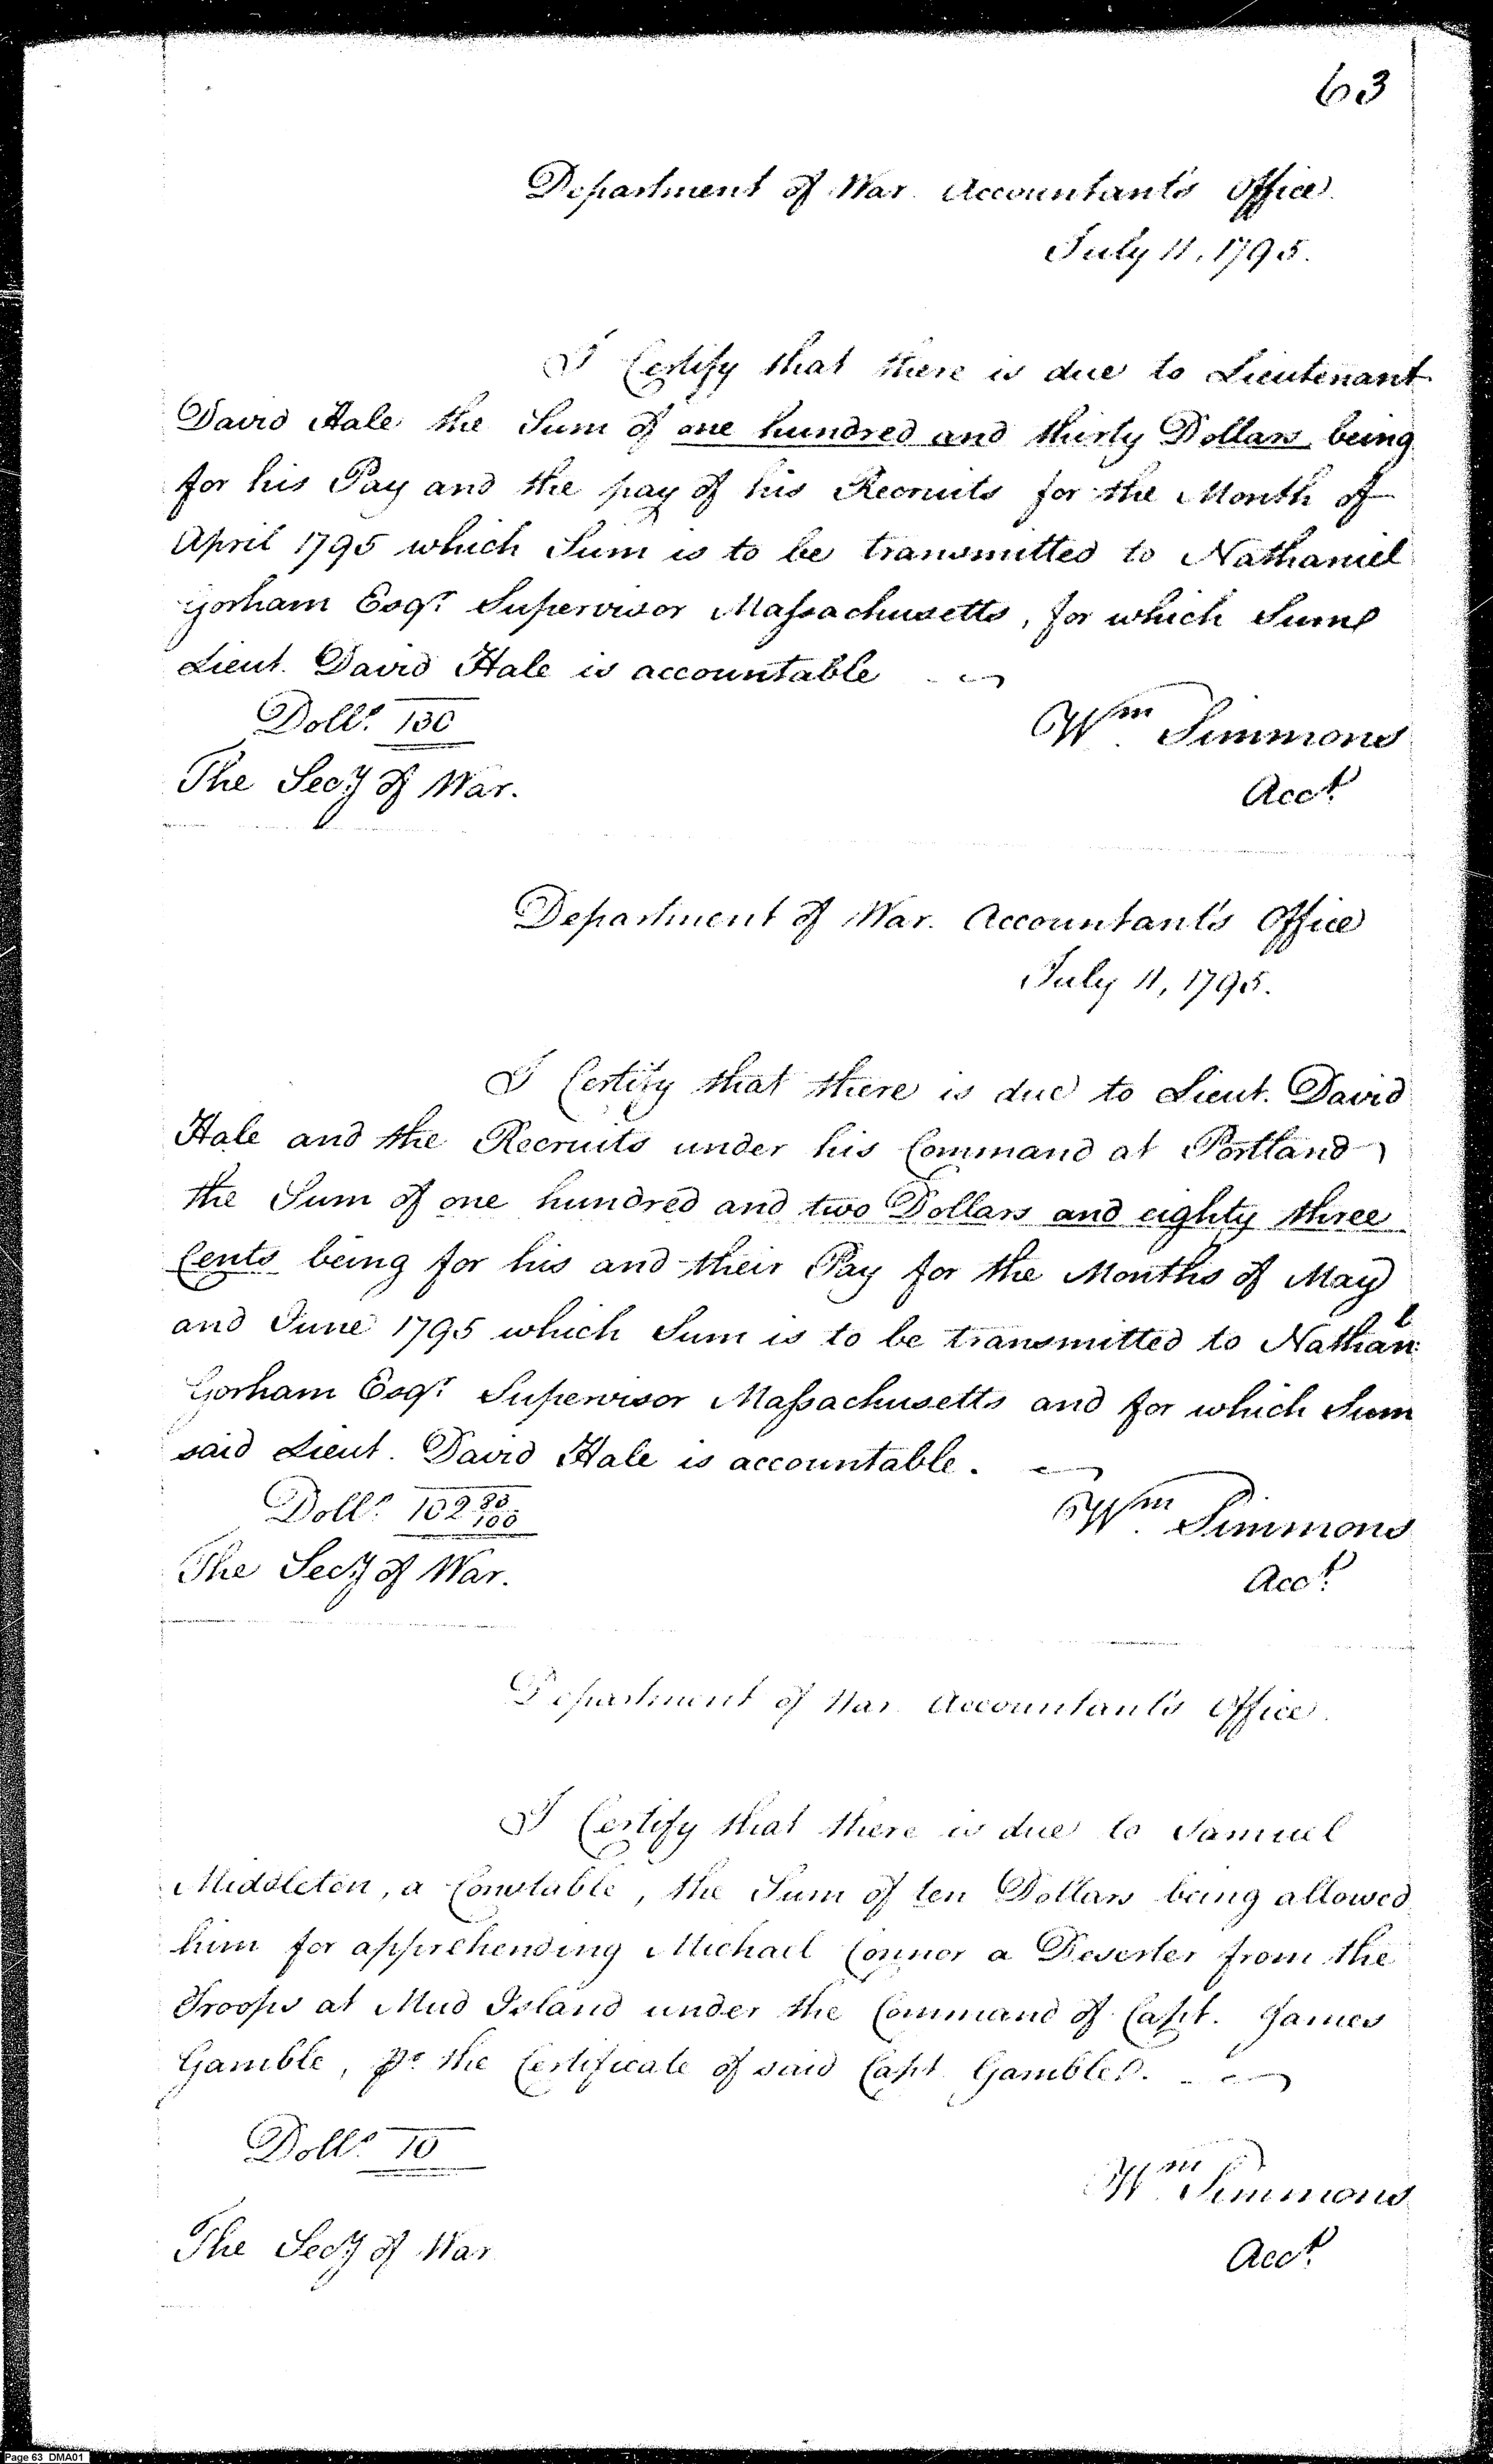 63
Department of War. Accountant's Office.
July 11, 1795.
I Certify that there is due to Lieutenant
David Hale the Sum of one hundred and thirty Dollars being
for his Pay and the pay of his Recruits for the Month of
April 1795 which Sum is to be transmitted to Nathaniel
Gorham Esqr. Supervisor Massachusetts, for which Sum
Lieut. David Hale is accountable
Dolls. 130
Wm. Simmons
The Secy of War.
Acct.
Department of War. Accountant's Office
July 11, 1795.
I Certify that there is due to Lieut. David
Hale and the Recruits under his Command at Portland
the Sum of one hundred and two Dollars and eighty three
Cents being for his and their Pay for the Months of May
and June 1795 which Sum is to be transmitted to Nathanl:
Gorham Esqr. Supervisor Massachusetts and for which Sum
said Lieut. David Hale is accountable.
Dolls. 102 83/100
Wm. Simmons
The Secy of War.
Acct.
Department of War Accountant's Office.
I Certify that there is due to Samuel
Middleton, a Constable, the Sum of ten Dollars being allowed
him for apprehending Michael Connor a Deserter from the
Troops at Mud Island under the Command of Capt. James
Gamble, pr. the Certificate of said Capt Gamble.
Dolls. 10
Wm. Simmons
The Secy of War
Acct.
Page 63 DMA01